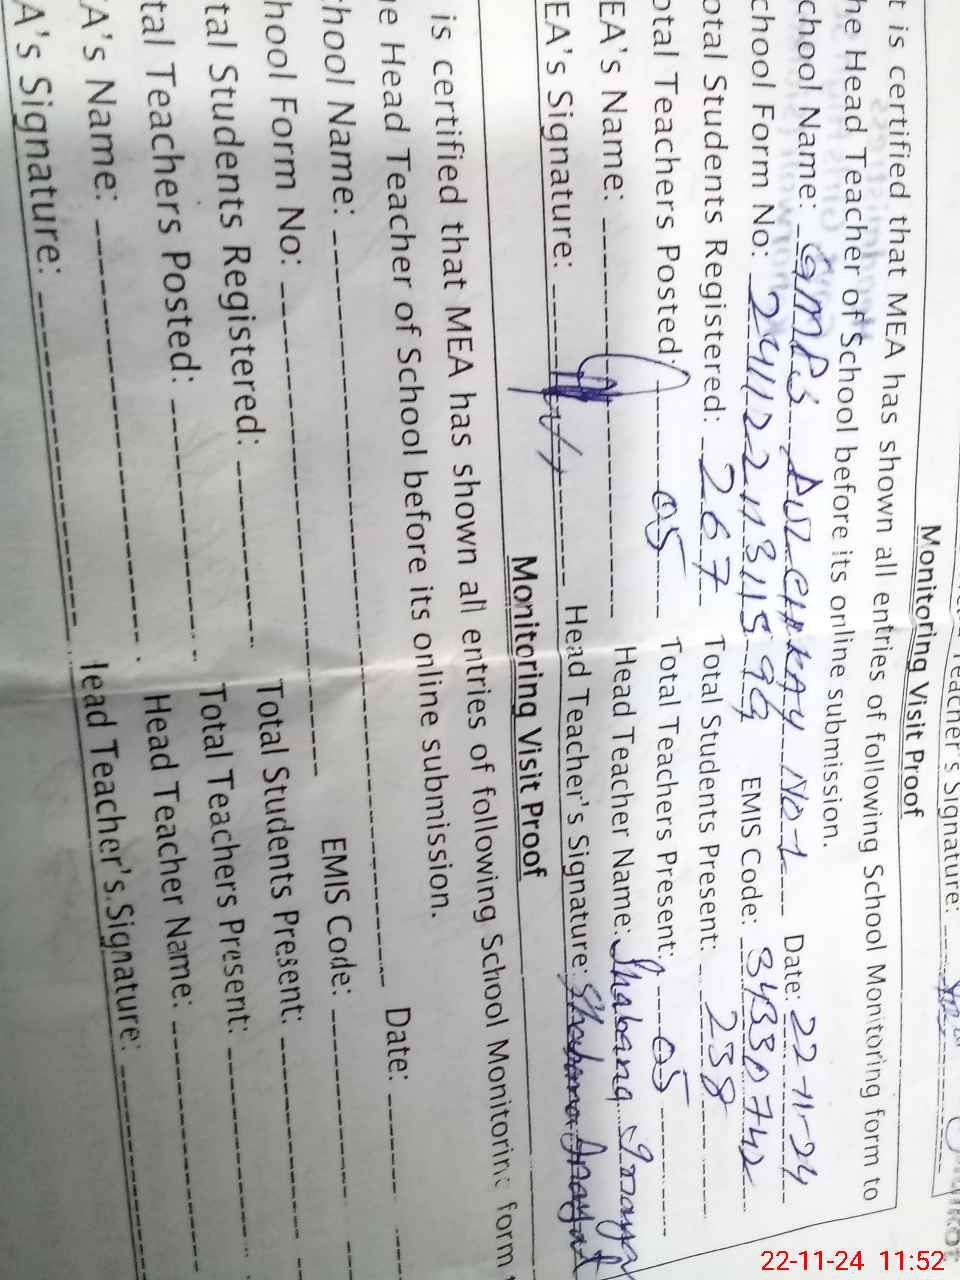 Teacher's Signature:
Monitoring Visit Proof
t is certified that MEA has shown all entries of following School Monitoring form to
he Head Teacher of School before its online submission.
chool Name: GMPS DULCHKAY No-1 Date: 22-11-24
chool Form No: EMIS Code: 34330742
otal Students Registered: 267 Total Students Present: 238
otal Teachers Posted: 05 Total Teachers Present: 05
EA's Name: Head Teacher Name: Shabana Inayat
EA's Signature: Head Teacher's Signature: Shabana Inayat
Monitoring Visit Proof
is certified that MEA has shown all entries of following School Monitoring form
e Head Teacher of School before its online submission.
chool Name: Date:
hool Form No: EMIS Code:
tal Students Registered: Total Students Present:
tal Teachers Posted: Total Teachers Present:
A's Name: Head Teacher Name:
A's Signature: lead Teacher's Signature:
22-11-24 11:52